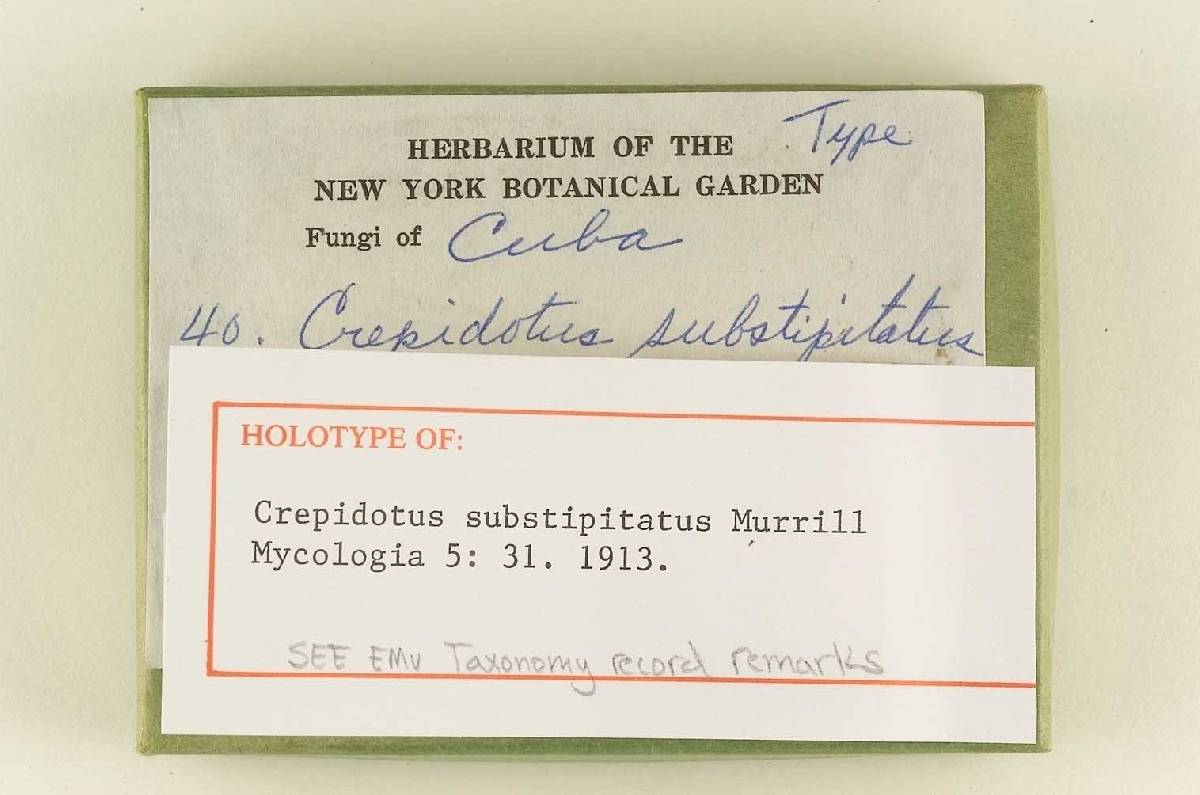 Type
HERBARIUM OF THE
NEW YORK BOTANICAL GARDEN
Fungi of Cuba
40. Crepidotus substipitatus
HOLOTYPE OF:
Crepidotus substipitatus Murrill
Mycologia 5: 31. 1913.
SEE EMu Taxonomy record remarks